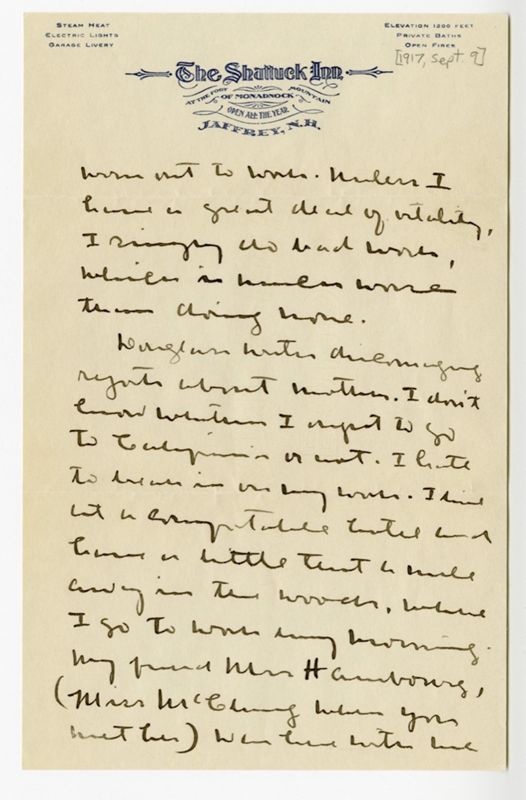 STEAM HEAT
ELECTRIC LIGHTS
GARAGE LIVERY
ELEVATION 1200 FEET
PRIVATE BATHS
OPEN FIRES
[1917, Sept. 9]
The Shattuck Inn
AT THE FOOT OF MONADNOCK MOUNTAIN
OPEN ALL THE YEAR
JAFFREY, N.H.
worn out to work. Unless I
have a great deal of vitality,
I simply do bad work,
which is much worse
than doing none.
Douglass writes discouraging
reports about mother. I don't
know whether I ought to go
to California or not. I hate
to break in on my work. I live
at a comfortable hotel and
have a little tent a mile
away in the woods, where
I go to work every morning.
My friend Mrs Hambourg,
(Miss McClung when you
met her) was here with me